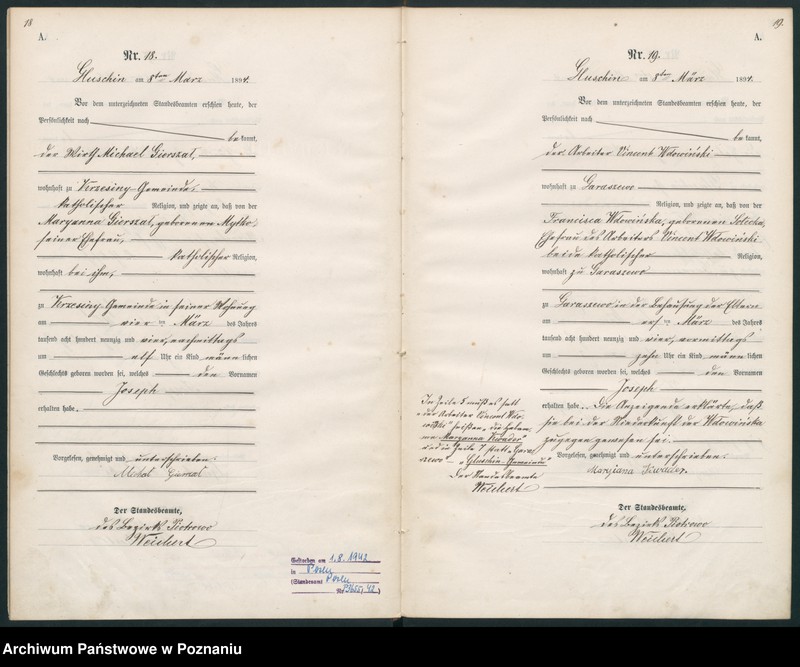 18
A.
Nr. 18.
Gluschin am 8ten März 1894.
Vor dem unterzeichneten Standesbeamten erschien heute, der
Persönlichkeit nach
bekannt,
der Wirth Michael Gierszal,
wohnhaft zu Krzesiny-Gemeinde,
katholischer Religion, und zeigte an, daß von der
Maryanna Gierszal, geborenen
seiner Ehefrau,
katholischer Religion,
wohnhaft bei ihm,
zu Krzesiny-Gemeinde in seiner Wohnung
am vier ten März des Jahres
tausend acht hundert neunzig und vier, nachmittags
um elf Uhr ein Kind männlichen
Geschlechts geboren worden sei, welches den Vornamen
Joseph
erhalten habe.
Vorgelesen, genehmigt und unterschrieben:
Michal
Der Standesbeamte,
des Bezirks Piotrowo
Weichert
Gestorben am 1.8.1942
in Posen
(Standesamt Posen
Nr. 42)
19.
A.
Nr. 19.
Gluschin am 8ten März 1894.
Vor dem unterzeichneten Standesbeamten erschien heute, der
Persönlichkeit nach
bekannt,
der Arbeiter Vincent Wdowiński
wohnhaft zu Garaszewo
Religion, und zeigte an, daß von der
Francisca Wdowińska, geborenen
Ehefrau des Arbeiters Vincent Wdowiński
beide katholischer Religion,
wohnhaft zu Garaszewo
zu Garaszewo in der Behausung der Eltern
am ersten März des Jahres
tausend acht hundert neunzig und vier, vormittags
um zehn Uhr ein Kind männlichen
Geschlechts geboren worden sei, welches den Vornamen
Joseph
erhalten habe. Die Anzeigende erklärte, daß
sie bei der Niederkunft der Wdowińska
zugegen gewesen sei.
Vorgelesen, genehmigt und unterschrieben:
Maryjana
Der Standesbeamte,
des Bezirks Piotrowo
Weichert
In Zeile 5 muß es statt
"der Arbeiter Vincent Wdo-
wiński" heißen, die
Maryanna
und in Zeile 7 statt "Gara-
szewo" "Gluschin-Gemeinde"
Der Standesbeamte
Weichert
Archiwum Państwowe w Poznaniu